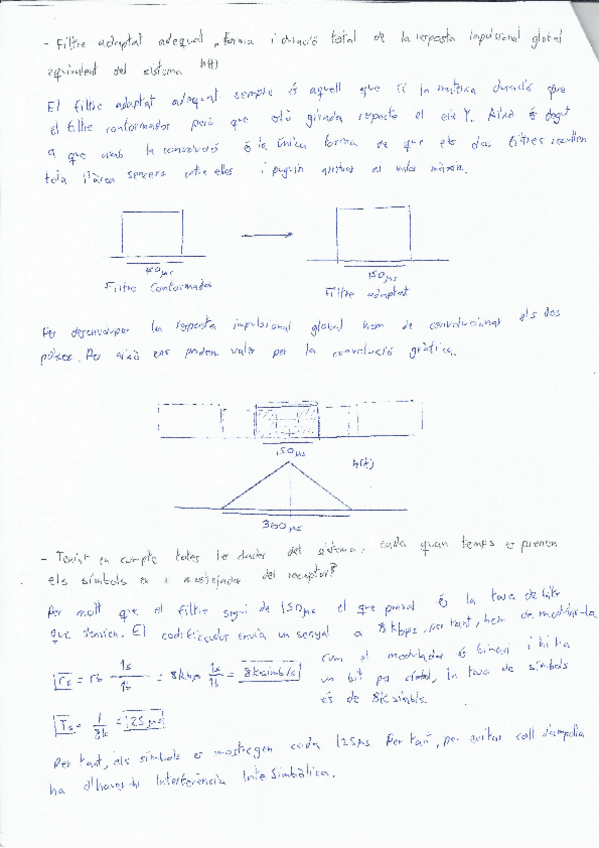 - Filtre adaptat adequat, forma i duració total de la resposta impulsional global
equivalent del sistema h(t)
El filtre adaptat adequat sempre és aquell que té la mateixa duració que
el filtre conformador però que està girada respecte el eix Y. Això és degut
a que amb la convolució és la única forma de que els dos filtres recullin
tota l'àrea sencera entre elles i puguin arribar al valor màxim.
150µs
150µs
Filtre Conformador
Filtre adaptat
Per desenvolupar la resposta impulsional global hem de convolucionar els dos
polsos. Per això ens podem valer per la convolució gràfica.
150µs
h(t)
300µs
- Tenint en compte totes les dades del sistema, cada quan temps es prenen
els símbols en el mostejador del receptor?
Per molt que el filtre sigui de 150µs el que preval és la tasa de bits
que s'envien. El codificador envia un senyal a 8kbps, per tant, hem de modular-la
com el modulador és binari i hi ha
un bit per símbol, la tasa de símbols
és de 8k símb/s.
rs = rb 1s/1b = 8kbps 1s/1b = 8ksimb/s
Ts = 1/8k = 125µs
Per tant, els símbols es mostregen cada 125µs Per tant, per evitar coll d'ampolla
ha d'haver-hi Interferència InterSimbòlica.